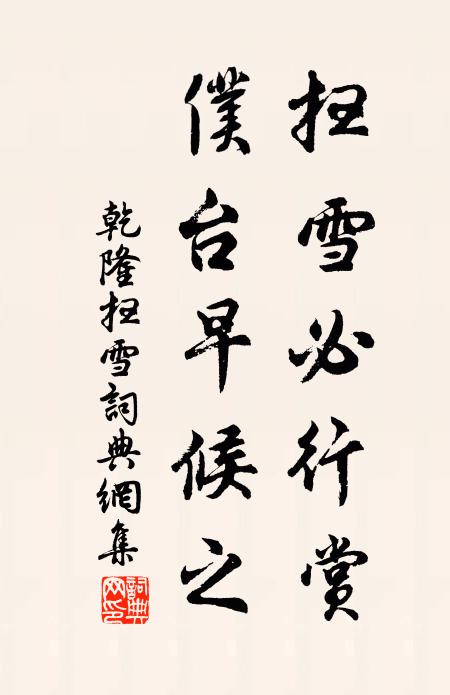 扫雪必行赏
僕台早候之
乾隆扫雪詞典網集
詞典網印